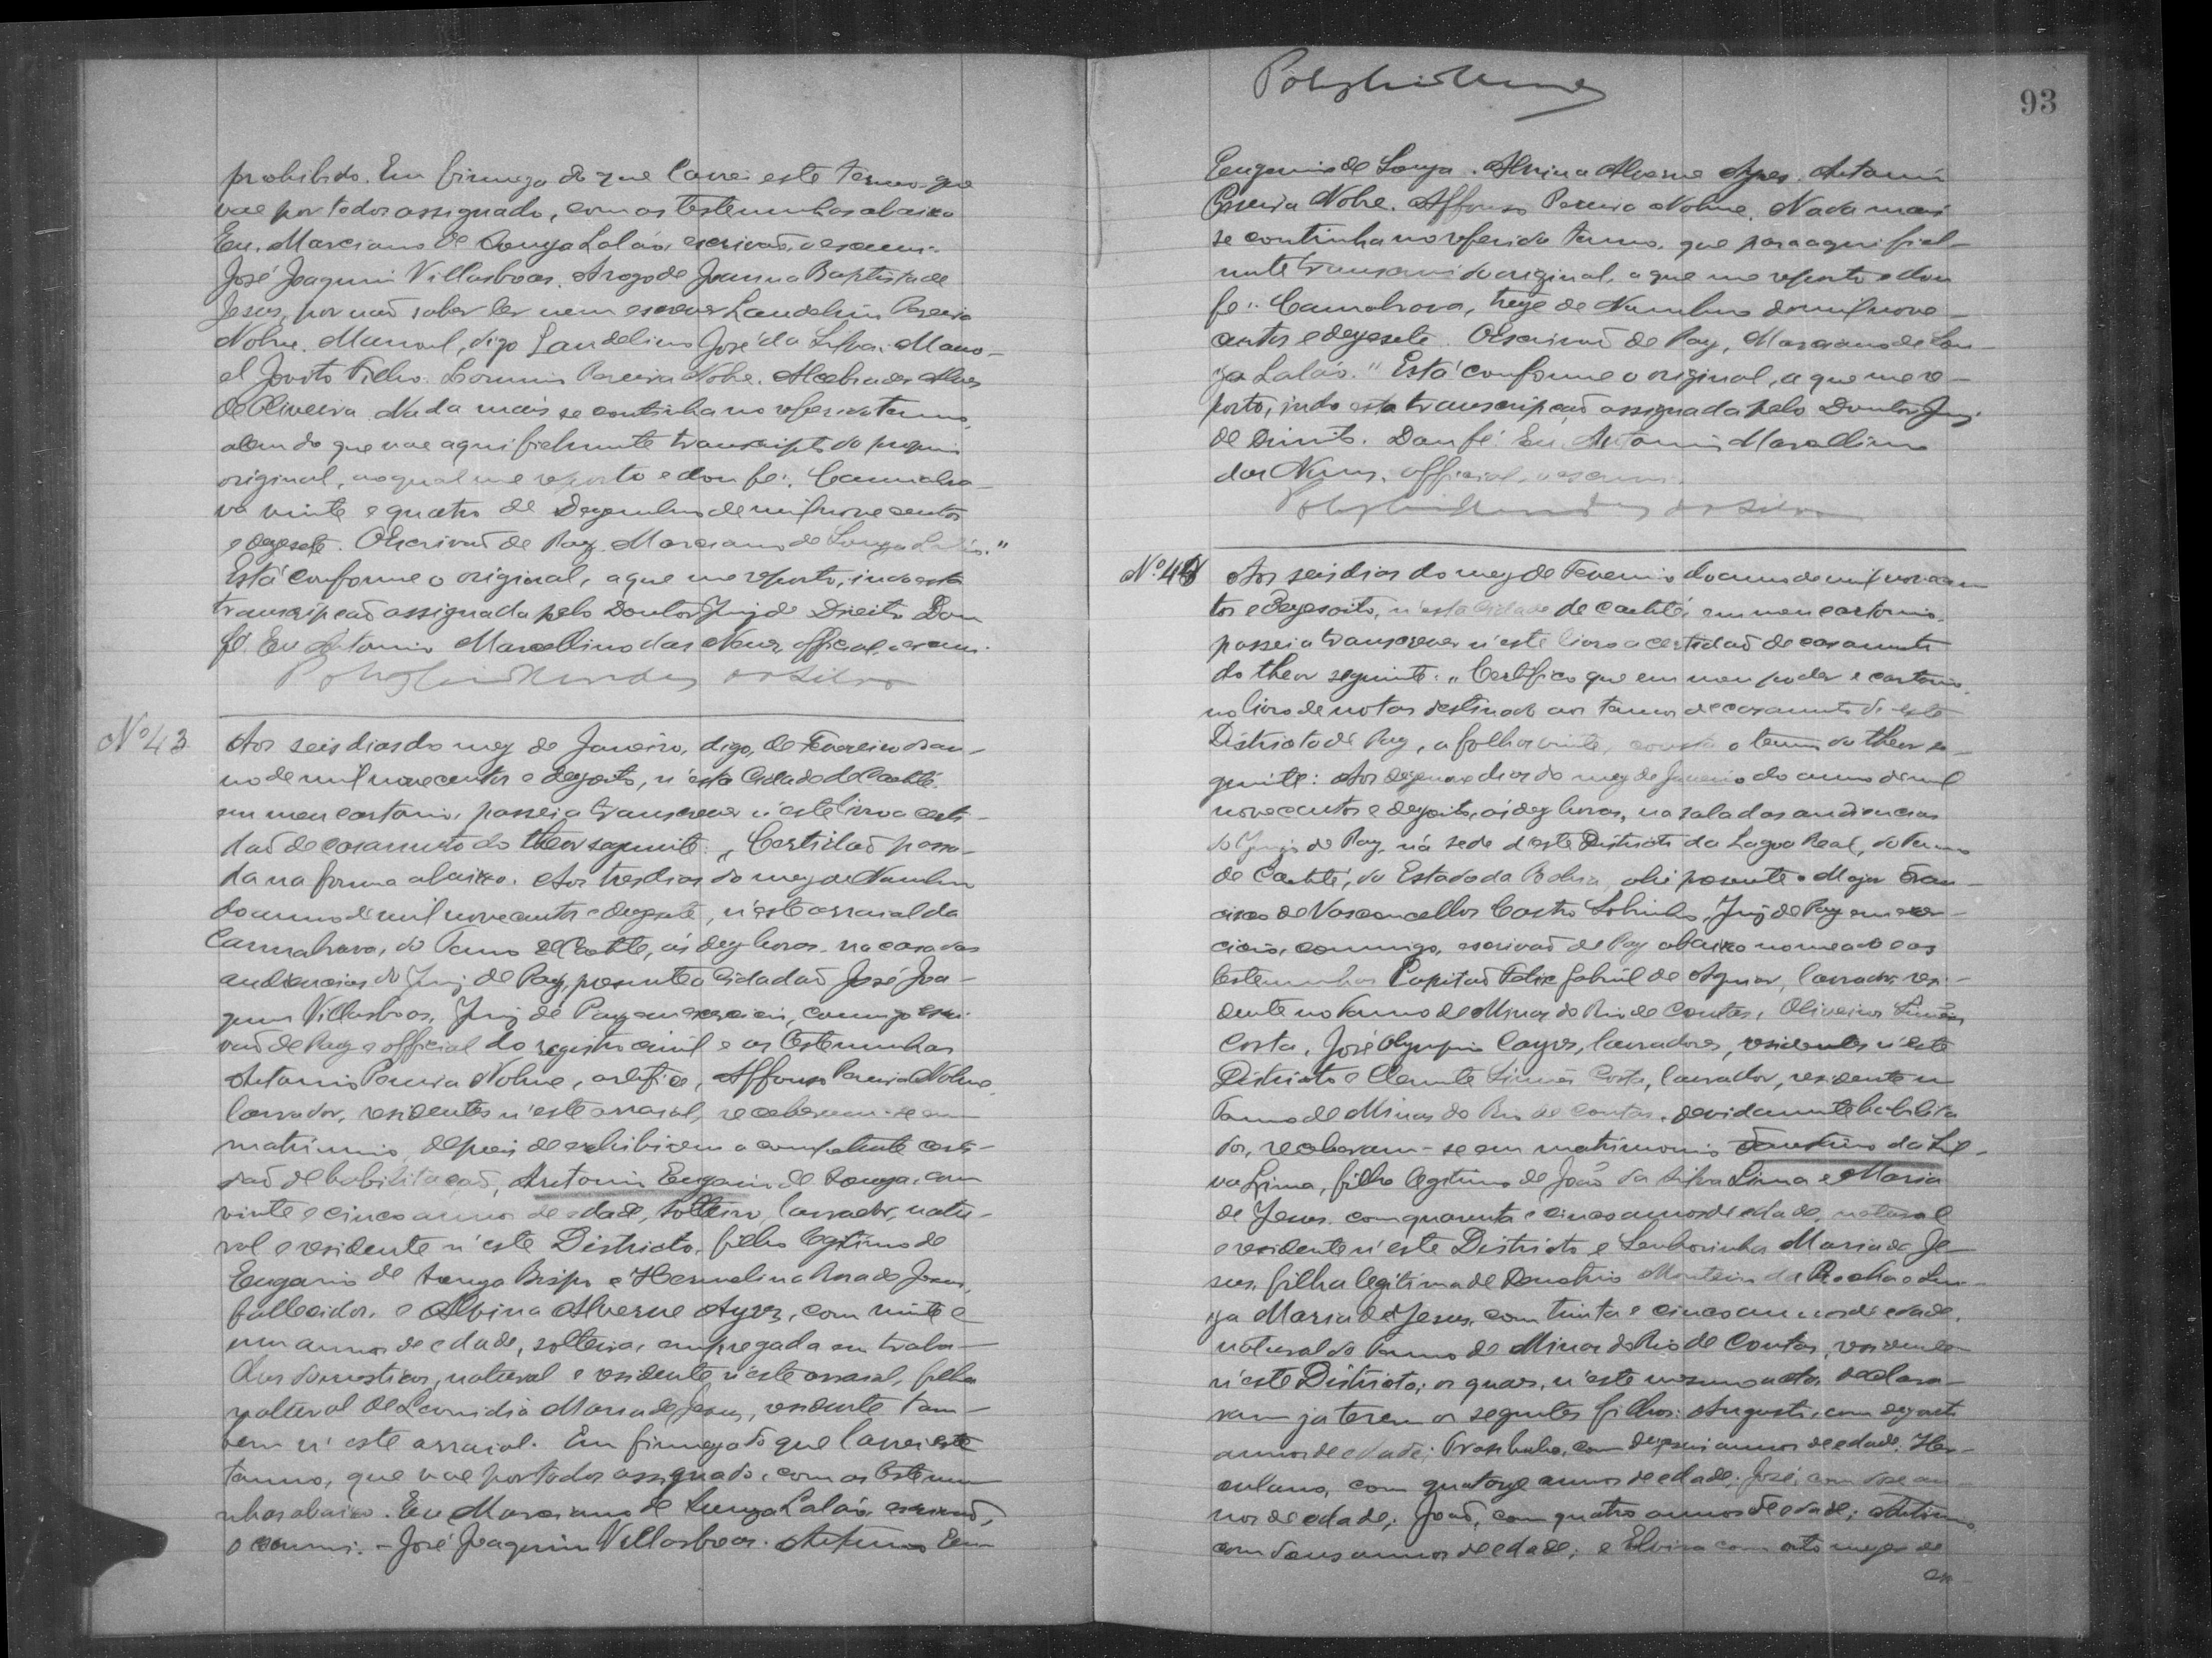 prohibido. Em firmeza do que lavrei este termo que
vae por todos assignado, com as testemunhas abaixo
Eu. Marciano de Souza Lalão, escrivão, o escrevi.
José Joaquim Villasboas. Arogo de Joanna Baptista de
Jesus, por não saber ler nem escrever Landelin Pereira
Nobre. Manoel, digo Landelino José da Silva. Mano-
el Jovito Filho. Pereira Nobre. Alcebiades Alves
de Oliveira. Nada mais se continha no referido termo,
alem do que vae aqui fielmente transcripto do proprio
original, ao qual me reporto e dou fé. Cannabra-
va vinte e quatro de Dezembro de mil nove centos
e dezesete. O Escrivão de Paz Marciano de Souza Lalão."
Está conforme o original, a que me reporto, indo esta
transcripção assignada pelo Doutor Juiz de Direito. Dou
fé. Eu Antonio Marcellino das Neves, official, o escrevi.
da Silva
No 43 Aos seis dias do mez de Janeiro, digo, de Fevereiro do an-
no de mil nove centos e dezoito, n'esta Cidade de Caetité.
em meu cartorio, passei a transcrever n'este livro a certi-
dão de casamento do theor seguinte: „Certidão passa-
da na forma abaixo. Aos tres dias do mez de Novembro
do anno de mil nove centos e dezesete, n'este arraial da
Cannabrava, do Termo de Caetité, ás dez horas, na casa das
audiencias do Juiz de Paz, presente o Cidadão José Joa-
quim Villasboas, Juiz de Paz em exercicio, commigo escri-
vão de Paz e official do registro civil e as testemunhas
Antonio Pereira Nobre, artifice, Affonso Pereira Nobre,
lavrador, residentes n'este arraial, receberam-se em
matrimonio, depois de exhibirem a competente certi-
dão de habilitação, Antonio Eugenio de Souza, com
vinte e cinco annos de edade, solteiro, lavrador, natu-
ral e residente n'este Districto, filho legitimo de
Eugenio de Souza Bispo e Hermelina Rosa de Jesus,
fallecidos, e Alvina Alverne Ayres, com vinte e
um annos de edade, solteira, empregada em traba-
lhos domesticos, natural e residente n'este arraial, filha
natural de Leonidia Maria de Jesus, residente tam-
bem n'este arraial. Em firmeza do que lavrei este
termo, que vae por todos assignado, com as testemu-
nhas abaixo. Eu Marciano de Souza Lalão, escrivão,
o escrevi. - José Joaquim Villasboas. Antonio Eu-
93
Eugenio de Souza. Alvina Alverne Ayres. Antonio
Pereira Nobre. Affonso Pereira Nobre. Nada mais
se continha no referido termo, que para aqui fiel-
mente transcrevi do original, a que me reporto e dou
fé. Cannabrava, treze de Novembro de mil nove-
centos e dezesete. O Escrivão de Paz, Marciano de Sou-
za Lalão." Está conforme o original, a que me re-
porto, indo esta transcripção assignada pelo Doutor Juiz
de Direito. Dou fé. Eu Antonio Marcellino
das Neves, official, o escrevi.
da Silva
No 44 Aos seis dias do mez de Fevereiro do anno de mil novecen-
tos e dezoito, n'esta Cidade de Caetité, em meu cartorio,
passei a transcrever n'este livro a certidão de casamento
do theor seguinte: „Certifico que em meu poder e cartorio,
no livro de notas destinado aos termos de casamento de este
Districto de Paz, a folhas vinte, consta o termo do theor se-
guinte: Aos dezenove dias do mez de Janeiro do anno de mil
novecentos e dezoito, ás dez horas, na sala das audiencias
do Juizo de Paz, ná sede d'este Districto da Lagoa Real, do Termo
de Caetité, do Estado da Bahia, ahi presente o Major Fran-
cisco de Vasconcellos Castro Sobrinho, Juiz de Paz em exer-
cicio, commigo, escrivão de Paz abaixo nomeado e as
testemunhas Capitão Felix Gabriel de Aguiar, lavrador, resi-
dente no Termo de Minas do Rio de Contas, Oliveiros Simões
Costa, José Olympio Cayres, lavradores, residentes n'este
Districto e Clemente Simões Costa, lavrador, residente no
Termo de Minas do Rio de Contas, devidamente habilita-
dos, receberam-se em matrimonio Faustino da Sil-
va Lima, filho legitimo de João da Silva Lima e Maria
de Jesus, com quarenta e cinco annos de edade, natural
e residente n'este Districto e Senhorinha Maria de Je-
sus, filha legitima de Demetrio Monteiro da Rocha e Lui-
za Maria de Jesus, com trinta e cinco annos de edade,
natural do Termo de Minas do Rio de Contas, residente
n'este Districto; os quaes, n'este mesmo acto, declara-
ram ja terem os seguintes filhos: Augusto, com dezoito
annos de edade; com dezeseis annos de edade; Her-
culano, com quatorze annos de edade; José, com dose an-
nos de edade; João, com quatro annos de edade; Antonio
com dous annos de edade; e Elvira com oito mezes de